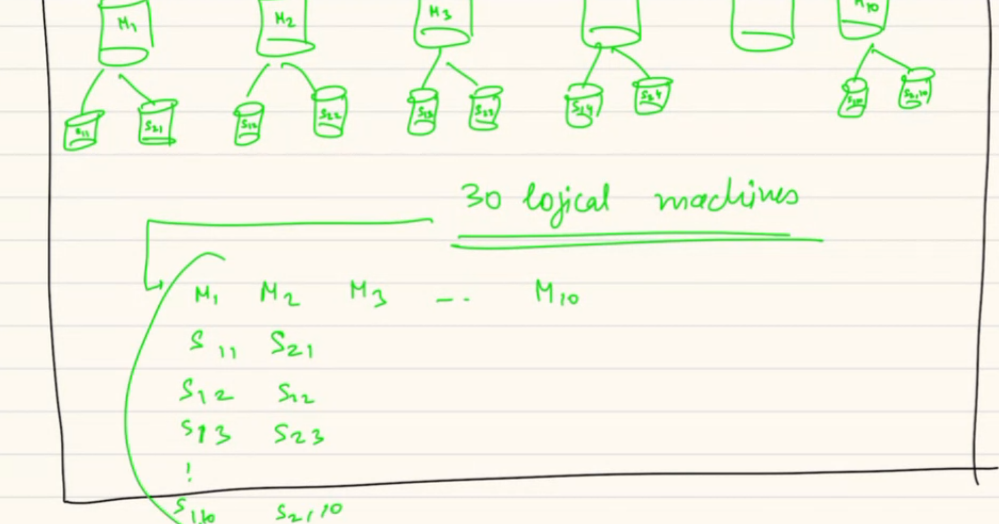 M1 M2 M3 M10
S11 S21 S12 S22 S13 S23 S14 S24 S2,10
30 logical machines
M1 M2 M3 -- M10
S11 S21
S12 S12
S13 S23
!
S1,10 S2,10